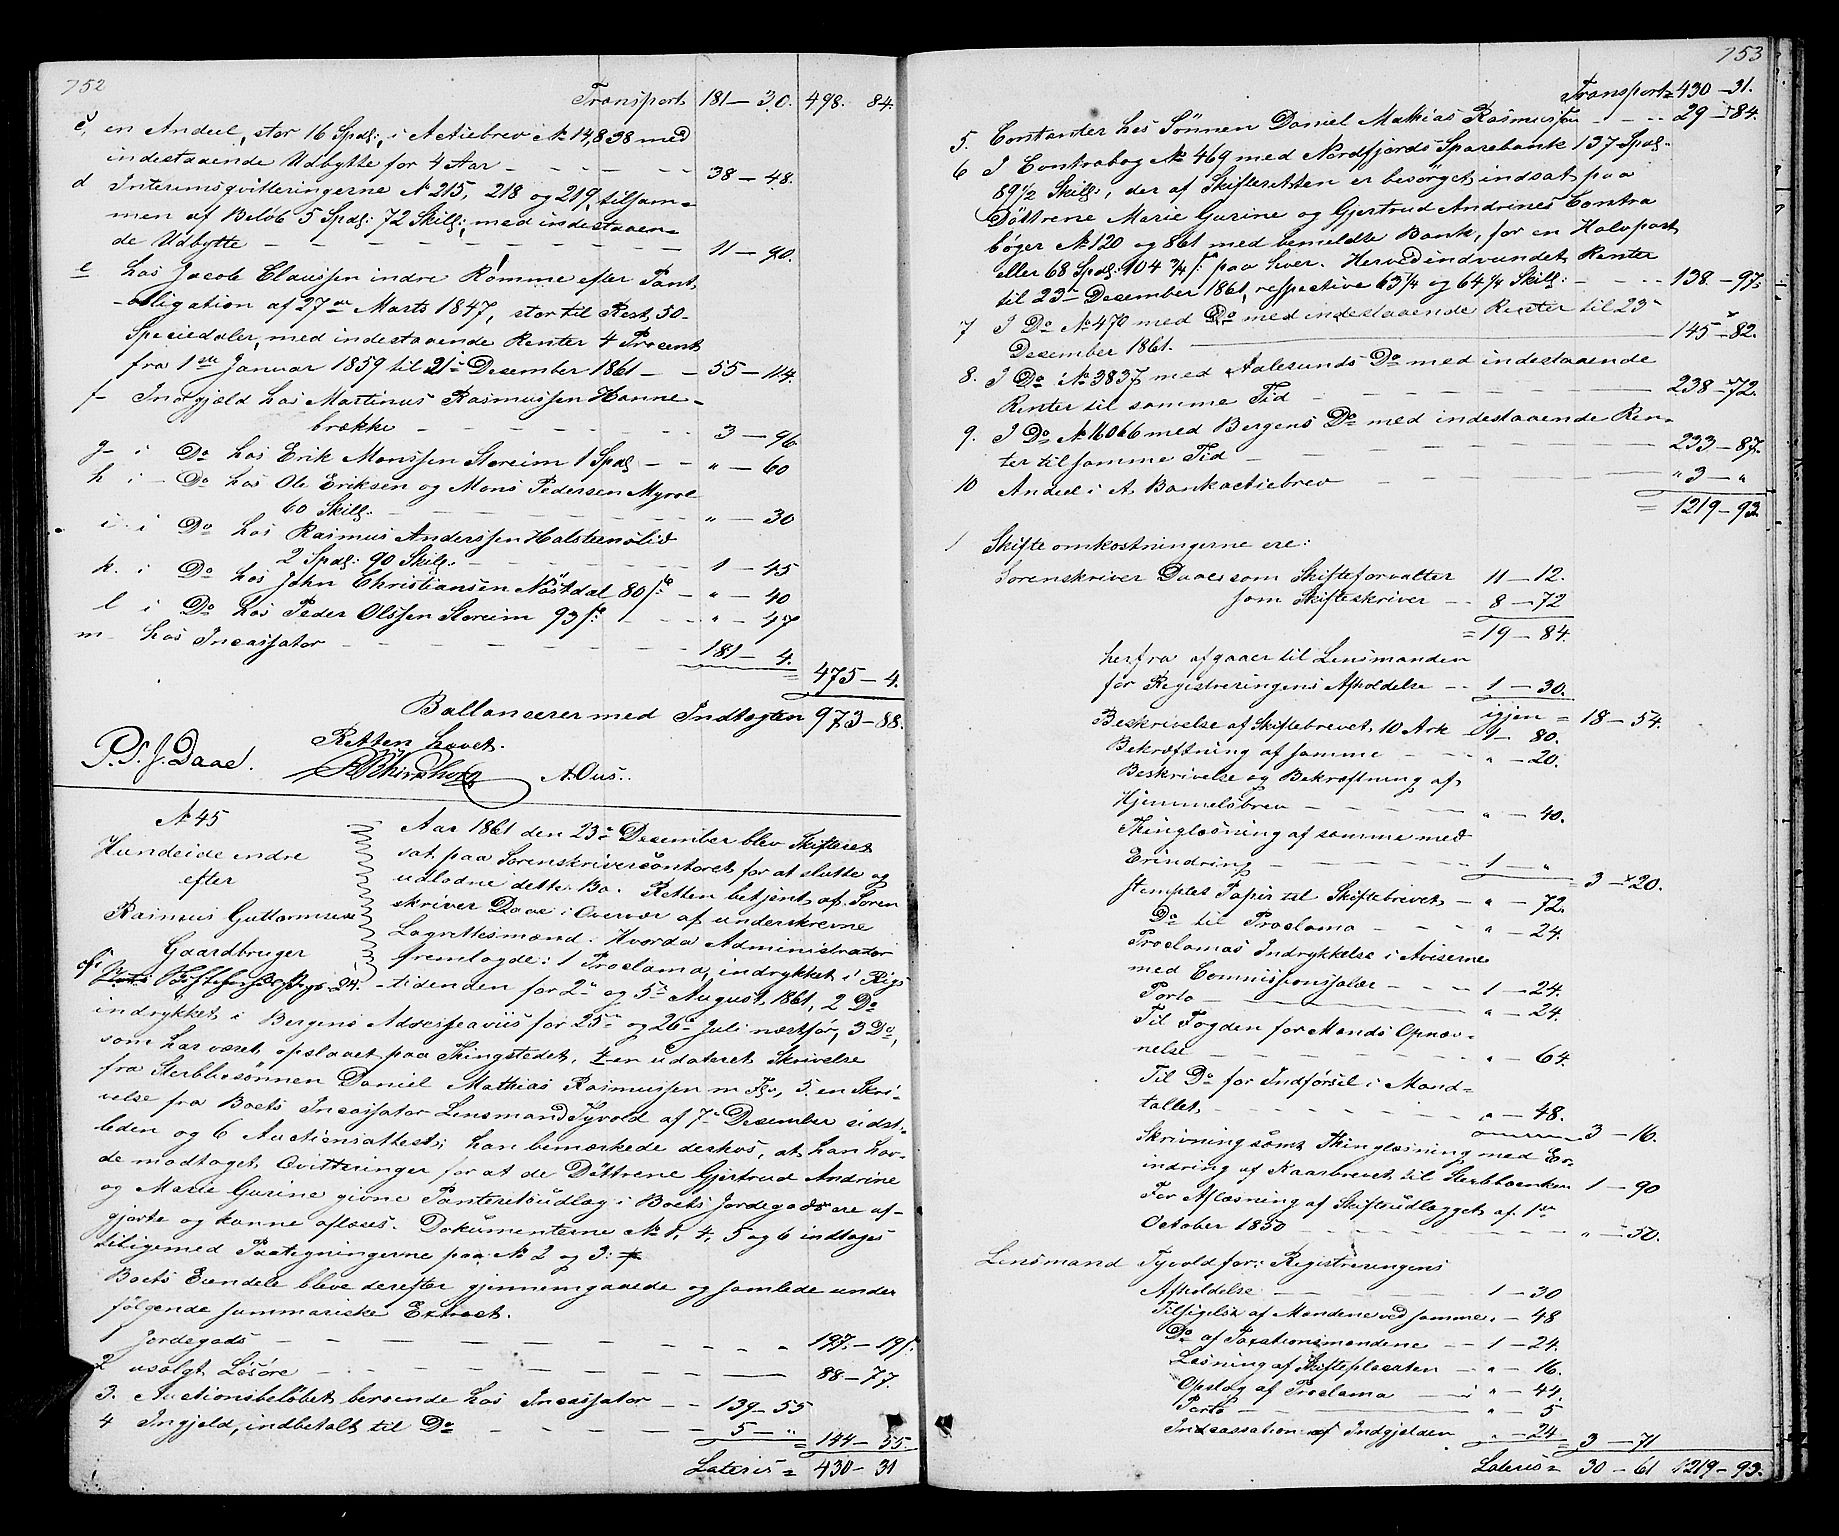 752
Transport 181 — 30. 498. 84.
c, en Andeel, stor 16 Spdl:, i Actiebrev No 14,838 med
indestaaende Udbytte for 4 Aar — 38 — 48.
d Interimsqvitteringerne No 215, 218 og 219, tilsam-
men af Beløb 5 Spdl: 72 Skill:, med indestaaen-
de Udbytte — 11 — 90.
e hos Jacob Claussen indre Romme efter Pant-
obligation af 27de Marts 1847, stor til Rest 50
Speciedaler, med indestaaende Renter 4 Procent
fra 1ste Januar 1859 til 21de December 1861 — 55 — 114.
f Indgjæld hos Martinus Rasmussen Hanne-
brække — 3 — 96.
g i Do hos Erik Monssen Storeim 1 Spdl — " — 60
h i Do hos Ole Eriksen og Mons Pedersen Myrvl
60 Skill: — " — 30
i i Do hos Rasmus Anderssen Halsteenslid
2 Spdl: 90 Skill: — 1 — 45
k. i Do hos John Christiansen Nøstdal 80 s — " — 40
l i Do hos Peder Olssen Storeim 93 s — " — 47
m hos Incassator — 181 — 4.
475 — 4.
Ballancerer med Indtægten 973 — 88.
Retten hævet.
P. J. Daae. A. Ous.
No 45
Hundeide indre
efter
Rasmus Guttormsen
Gaardbruger
Aar 1861 den 23de December blev Skifteret
sat paa Sorenskrivercontoret for at slutte og
udlodne dette Bo. Retten betjent af Soren
skriver Daae i Overvær af underskrevne
Lagrettesmænd. Hvorda Administrator
fremlagde: 1 Proclama, indrykket i Rigs
tidenden for 2den og 5te August 1861, 2 Do
indrykket i Bergens Adresseaviis for 25de og 26de Juli næstfør, 3 Do,
som har været opslaaet paa Thingstedet, 4 en udateret Skrivelse
fra Sterbbosønnen Daniel Mathias Rasmussen m Fl, 5. en Skri-
velse fra Boets Incassator Lensmand Tyvold af 7de December sidst-
leden og 6 Auctionsattest; han bemærkede derhos, at han hav-
de modtaget Qvitteringer for at de Døttrene Gjertrud Andrine
og Marie Gurine givne Panteretsudlæg i Boets Jordegods ere af-
gjorte og kunne aflæses. Dokumenterne No 1, 4, 5 og 6 indtages
tilligemed Paategningerne paa No 2 og 3:
Boets Eiendele bleve derefter gjennemgaaede og samlede under
følgende summariske Extract.
1 Jordegods — 197. — 19 s.
2 usolgt Løsøre — 88 — 77.
3. Auctionsbeløbet beroende hos Incassator — 139 — 55
4 Ingjeld, indbetalt til Do — 5 — " 144 — 55.
Lateris = 430 — 31
753
Transport = 430 — 31.
5. Contanter hos Sønnen Daniel Mathias Rasmussen — 29 — 84.
6 I Contrabog No 469 med Nordfjords Sparebank 137 Spdl.
89 1/2 Skill:, der af Skifteretten er besørget indsat paa
Døttrene Marie Gurine og Gjertrud Andrines Contra
bøger No 120 og 861 med bemeldte Bank, for en Halvpart
eller 68 Spdl: 104 3/4 s paa hver. Herved indvundet Renter
til 23de December 1861, respective 63 1/4 og 64 1/4 Skill: — 138. — 97.
7 I Do No 470 med Do med indestaaende Renter til 23de
December 1861. — 145 — 82.
8. I Do No 3837 med Aalesunds Do med indestaaende
Renter til samme Tid — 238 — 72.
9. I Do No 16066 med Bergens Do med indestaaende Ren-
ter til samme Tid — 233 — 87.
10 Andeel i A. Bankactiebrev — " 3 — "
= 1219 — 93.
1 Skifteomkostningerne ere:
Sorenskriver Daae som Skifteforvalter 11 — 12.
som Skifteskriver — 8 — 72
= 19 — 84.
herfra afgaaer til Lensmanden
for Registreringens Afholdelse — 1 — 30.
igjen = 18 — 54.
Beskrivelse af Skiftebrevet 10 Ark — 1 — 80.
Bekræftning af samme — " — 20.
Beskrivelse og Bekræftning af
Hjemmelsbrev — " — 40.
Thinglæsning af samme med
Erindring — 1 — "
= 3 — 20.
stemplet Papir til Skiftebrevet — " — 72.
Do til Proclama — " — 24.
Proclamas Indrykkelse i Aviserne
med Commissionssalær — 1 — 24.
Porto — " — 24.
Til Fogden for Mands Opnæv-
nelse — " — 64.
Til Do for Indførsel i Mand-
tallet — " — 48.
3 — 16.
Skrivning samt Thinglæsning med Er-
indring af Kaarbrevet til Sterbboenken 1 — 90
For Aflæsning af Skifteudlægget af 1ste
October 1850 — " — 50.
Lensmand Tyvold for: Registreringens
Afholdelse — 1 — 30
Tilsigelse af Mændene ved samme " — 48
Do af Taxationsmændene — 1 — 24.
Læsning af Skifteplacaten — " — 16.
Opslag af Proclama — " — 44.
Porto — " — 5
Indcassation af Indgjelden " — 24
= 3 — 71
Lateris = 30 — 61 1219 — 93.